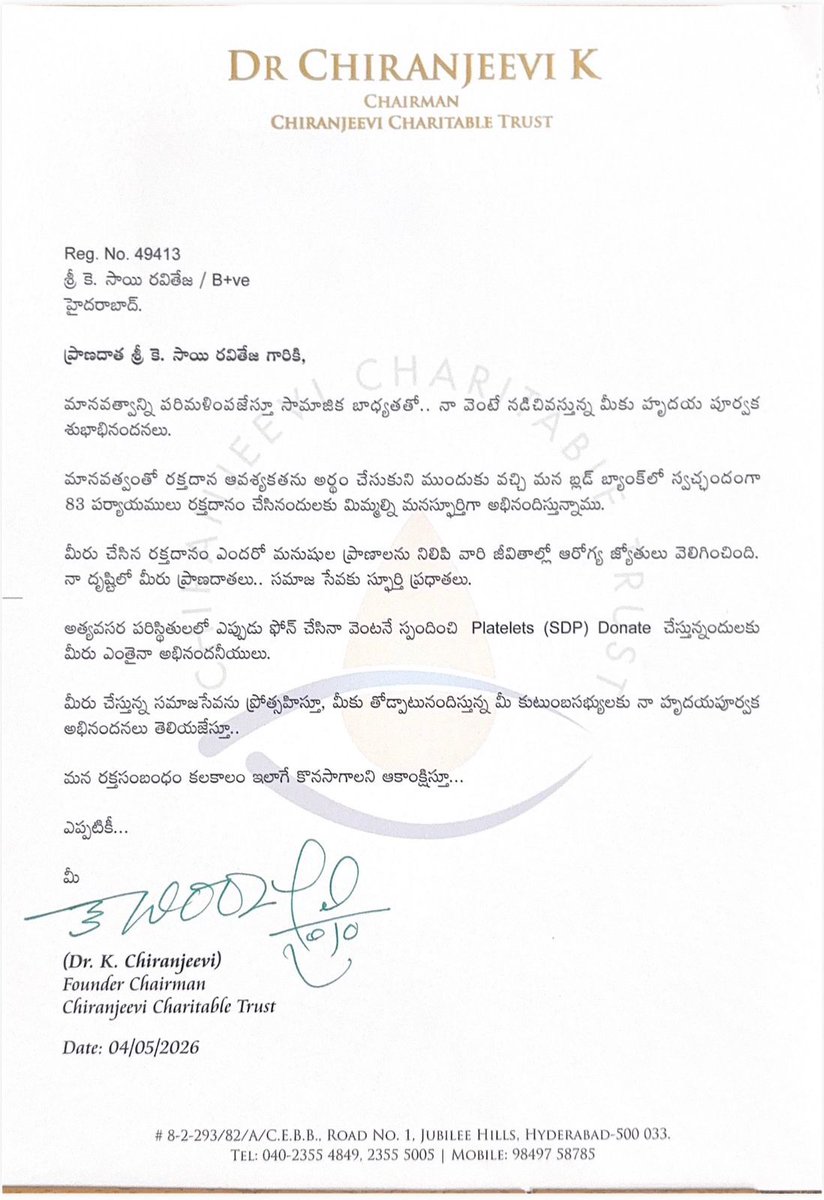 DR CHIRANJEEVI K
CHAIRMAN
CHIRANJEEVI CHARITABLE TRUST
Reg. No. 49413
శ్రీ కె. సాయి రవితేజ / B+ve
హైదరాబాద్.
ప్రాణదాత శ్రీ కె. సాయి రవితేజ గారికి,
మానవత్వాన్ని పరిమళింపజేస్తూ సామాజిక బాధ్యతతో.. నా వెంటే నడిచివస్తున్న మీకు హృదయ పూర్వక
శుభాభినందనలు.
మానవత్వంతో రక్తదాన ఆవశ్యకతను అర్థం చేసుకుని ముందుకు వచ్చి మన బ్లడ్ బ్యాంక్‌లో స్వచ్ఛందంగా
83 పర్యాయములు రక్తదానం చేసినందులకు మిమ్మల్ని మనస్ఫూర్తిగా అభినందిస్తున్నాము.
మీరు చేసిన రక్తదానం ఎందరో మనుషుల ప్రాణాలను నిలిపి వారి జీవితాల్లో ఆరోగ్య జ్యోతులు వెలిగించింది.
నా దృష్టిలో మీరు ప్రాణదాతలు.. సమాజ సేవకు స్ఫూర్తి ప్రధాతలు.
అత్యవసర పరిస్థితులలో ఎప్పుడు ఫోన్ చేసినా వెంటనే స్పందించి Platelets (SDP) Donate చేస్తున్నందులకు
మీరు ఎంతైనా అభినందనీయులు.
మీరు చేస్తున్న సమాజసేవను ప్రోత్సహిస్తూ, మీకు తోడ్పాటునందిస్తున్న మీ కుటుంబసభ్యులకు నా హృదయపూర్వక
అభినందనలు తెలియజేస్తూ..
మన రక్తసంబంధం కలకాలం ఇలాగే కొనసాగాలని ఆకాంక్షిస్తూ...
ఎప్పటికీ...
మీ
(Dr. K. Chiranjeevi)
Founder Chairman
Chiranjeevi Charitable Trust
Date: 04/05/2026
# 8-2-293/82/A/C.E.B.B., ROAD NO. 1, JUBILEE HILLS, HYDERABAD-500 033.
TEL: 040-2355 4849, 2355 5005 | MOBILE: 98497 58785
CHIRANJEEVI CHARITABLE TRUST